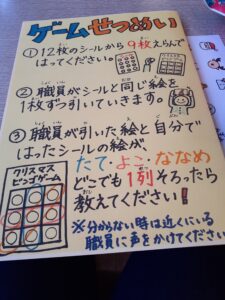 ゲームせつめい
①12枚のシールから9枚えらんで
はってください。
②職員がシールと同じ絵を
1枚ずつ引いていきます。
③職員が引いた絵と自分で
はったシールの絵が
たて・よこ・ななめ
どこでも1列そろったら
教えてください!
クリスマス
ビンゴゲーム
※分からない時は近くにいる
職員に声をかけてください